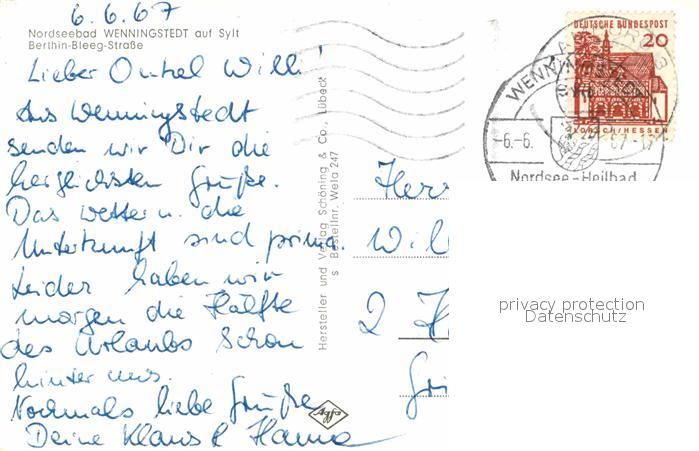 6.6.67
Nordseebad WENNINGSTEDT auf Sylt
Berthin-Bleeg-Straße
Lieber Onkel Willi!
Aus Wenningstedt
senden wir Dir die
herzlichsten Grüße.
Das Wetter u. die
Unterkunft sind prima.
Leider haben wir
morgen die Hälfte
des Urlaubs schon
hinter uns.
Nochmals liebe Grüße
Deine Klaus & Hanna
Hersteller und Verlag Schöning & Co., Lübeck
Bestellnr. Wela 247
Agfa
DEUTSCHE BUNDESPOST
20
LORSCH/HESSEN
WENNINGSTEDT
-6.-6. 67-17
Nordsee-Heilbad
Herr
Wil
2 H
Gri
privacy protection
Datenschutz